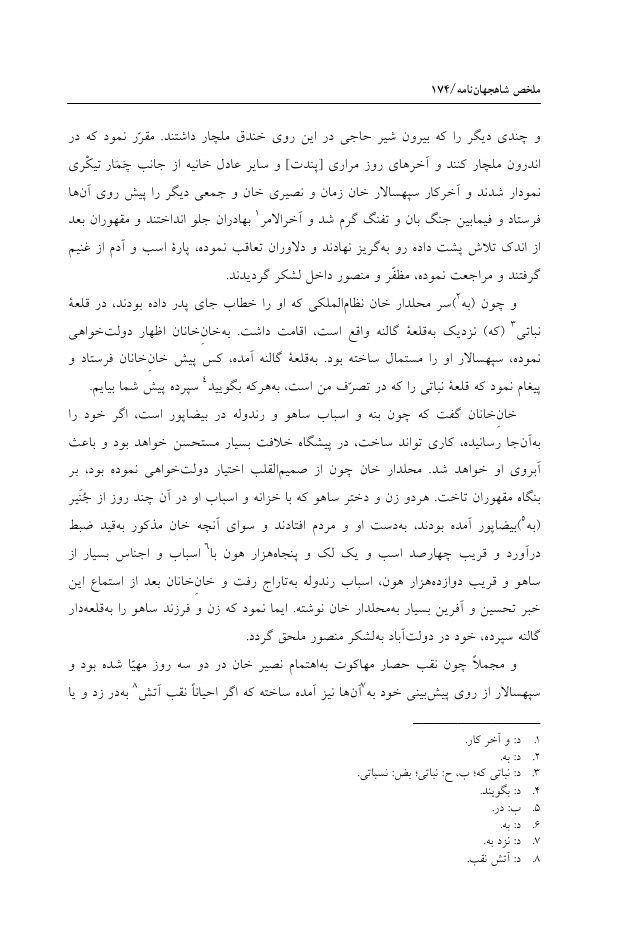 ملخص شاهجهان‌نامه/۱۷۴
و چندی دیگر را که بیرون شیر حاجی در این روی خندق ملچار داشتند. مقرّر نمود که در
اندرون ملچار کنند و آخرهای روز مراری [پندت] و سایر عادل خانیه از جانب چَمَار تیکْری
نمودار شدند و آخرکار سپهسالار خان زمان و نصیری خان و جمعی دیگر را پیش روی آن‌ها
فرستاد و فیمابین جنگ بان و تفنگ گرم شد و آخرالامر۱ بهادران جلو انداختند و مقهوران بعد
از اندک تلاش پشت داده رو به‌گریز نهادند و دلاوران تعاقب نموده، پارهٔ اسب و آدم از غنیم
گرفتند و مراجعت نموده، مظفّر و منصور داخل لشکر گردیدند.
و چون (به۲)سر محلدار خان نظام‌الملکی که او را خطاب جای پدر داده بودند، در قلعهٔ
نباتی۳ (که) نزدیک به‌قلعهٔ گالنه واقع است، اقامت داشت. به‌خانِ‌خانان اظهار دولت‌خواهی
نموده، سپهسالار او را مستمال ساخته بود. به‌قلعهٔ گالنه آمده، کس پیش خانِ‌خانان فرستاد و
پیغام نمود که قلعهٔ نباتی را که در تصرّف من است، به‌هرکه بگویید۴ سپرده پیش شما بیایم.
خانِ‌خانان گفت که چون بنه و اسباب ساهو و رندوله در بیضاپور است، اگر خود را
به‌آن‌جا رسانیده، کاری تواند ساخت، در پیشگاه خلافت بسیار مستحسن خواهد بود و باعث
آبروی او خواهد شد. محلدار خان چون از صمیم‌القلب اختیار دولت‌خواهی نموده بود، بر
بنگاه مقهوران تاخت. هردو زن و دختر ساهو که با خزانه و اسباب او در آن چند روز از جُنَیر
(به۵)بیضاپور آمده بودند، به‌دست او و مردم افتادند و سوای آنچه خان مذکور به‌قید ضبط
درآورد و قریب چهارصد اسب و یک لک و پنجاه‌هزار هون با۶ اسباب و اجناس بسیار از
ساهو و قریب دوازده‌هزار هون، اسباب رندوله به‌تاراج رفت و خانِ‌خانان بعد از استماع این
خبر تحسین و آفرین بسیار به‌محلدار خان نوشته. ایما نمود که زن و فرزند ساهو را به‌قلعه‌دار
گالنه سپرده، خود در دولت‌آباد به‌لشکر منصور ملحق گردد.
و مجملاً چون نقب حصار مهاکوت به‌اهتمام نصیر خان در دو سه روز مهیّا شده بود و
سپهسالار از روی پیش‌بینی خود به۷آن‌ها نیز آمده ساخته که اگر احیاناً نقب آتش۸ به‌در زد و یا
۱. د: و آخر کار.
۲. د: به.
۳. د: نباتی که؛ ب، ح: نباتی؛ بض: نسباتی.
۴. د: بگویند.
۵. ب: در.
۶. د: به.
۷. د: نزد به.
۸. د: آتش نقب.